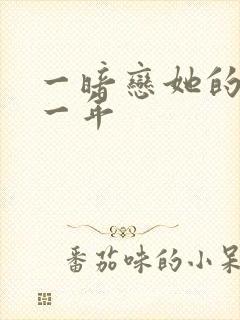 一暗戀她的
一年
番茄味的小呆